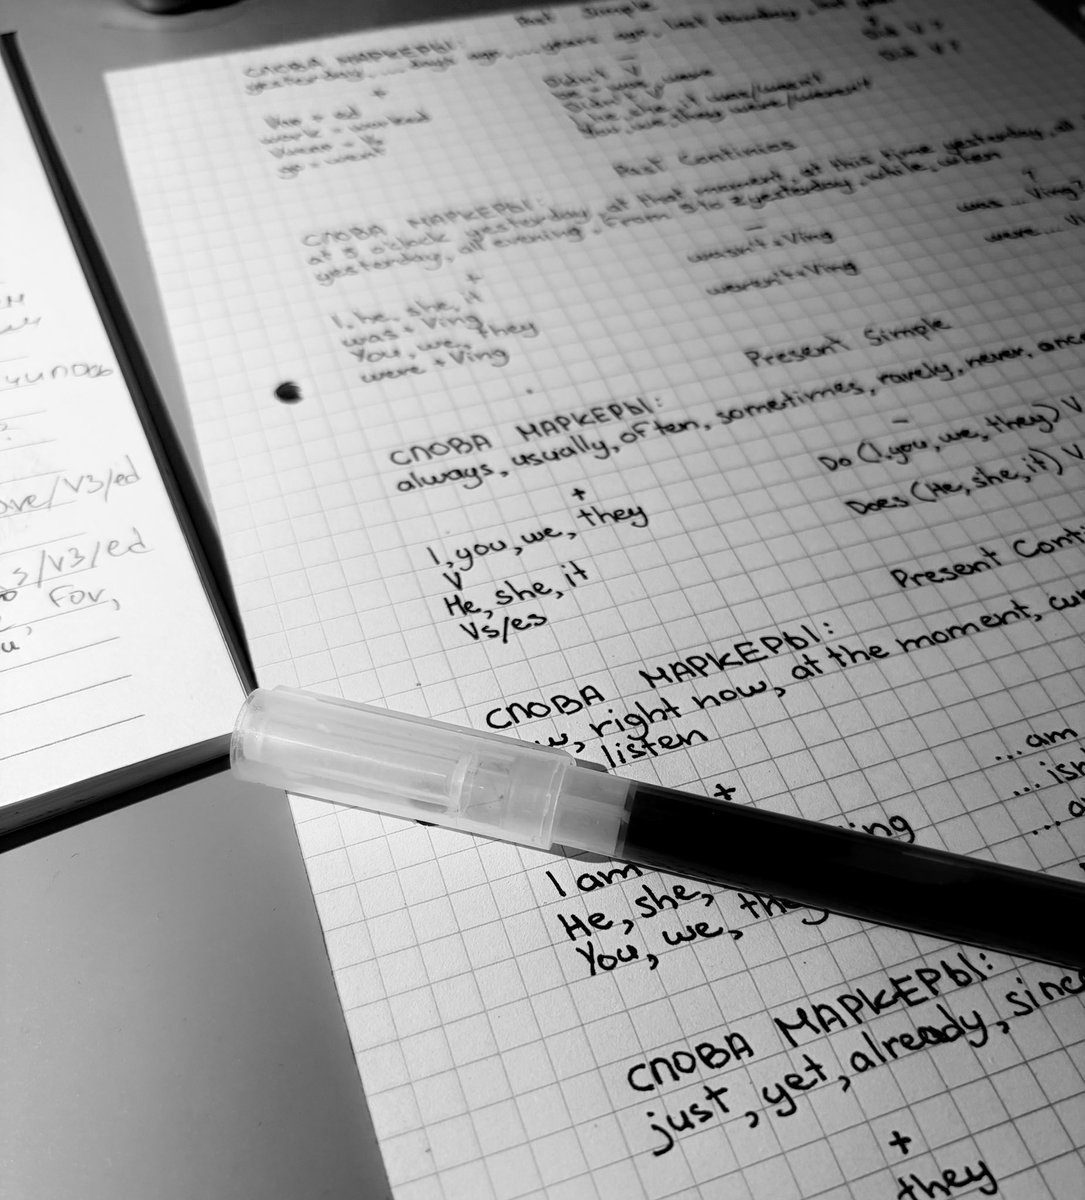 Past Simple
СЛОВА МАРКЕРЫ:
yesterday, ... days ago, ... years ago, last Monday, last
+
V+ = ed
work = worked
go = went
Didn't V
I, he, she, it was/wasn't
You, we, they were/weren't
Did V?
Did V?
Past Continies
СЛОВА МАРКЕРЫ:
at 5 o'clock yesterday, at that moment, at this time yesterday, all
yesterday, all evening, from 5 to 7 yesterday, while, when
+
I, he, she, it
was + Ving
You, we, they
were + Ving
–
wasn't + Ving
weren't + Ving
?
was ... Ving?
were ... V
Present Simple
СЛОВА МАРКЕРЫ:
always, usually, often, sometimes, rarely, never, once
+
I, you, we, they
V
He, she, it
Vs/es
–
Do (I, you, we, they) V
Does (He, she, it) V
Present Conti
СЛОВА МАРКЕРЫ:
right now, at the moment, cur
listen
+
ing
I am
He, she,
You, we, they
...am
...isn
...a
СЛОВА МАРКЕРЫ:
just, yet, already, sinc
+
they
ve/V3/ed
s/V3/ed
For,